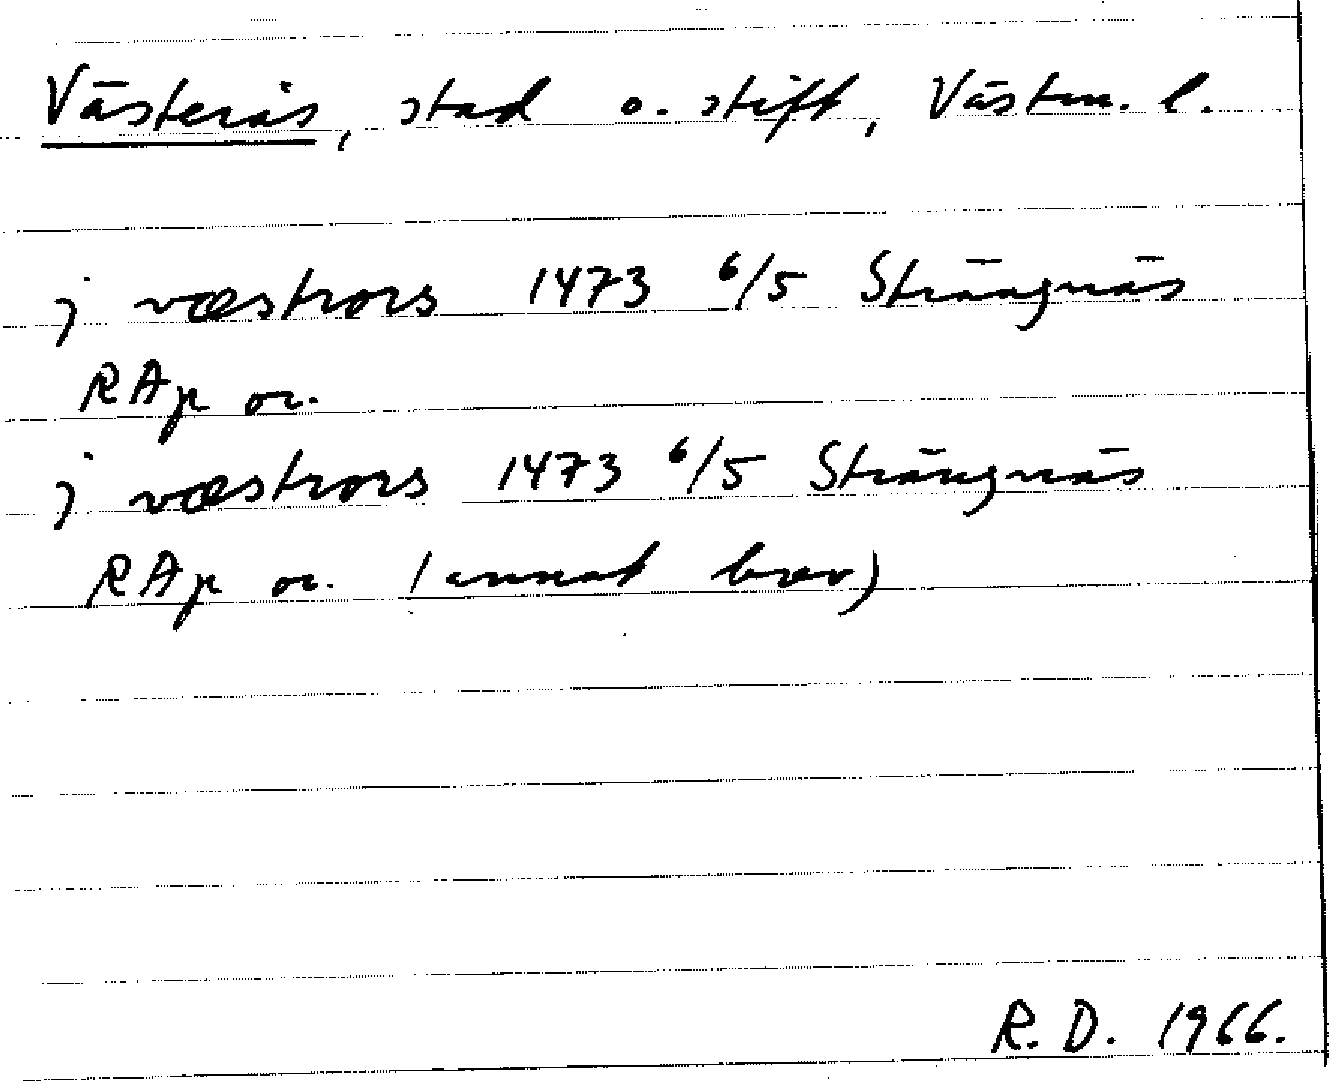 Västerås, stad o. stift, Västm. l.
j væstrors 1473 6/5 Strängnäs
RAp or.
j væstrors 1473 6/5 Strängnäs
RAp or. (annat brev)
R. D. 1966.